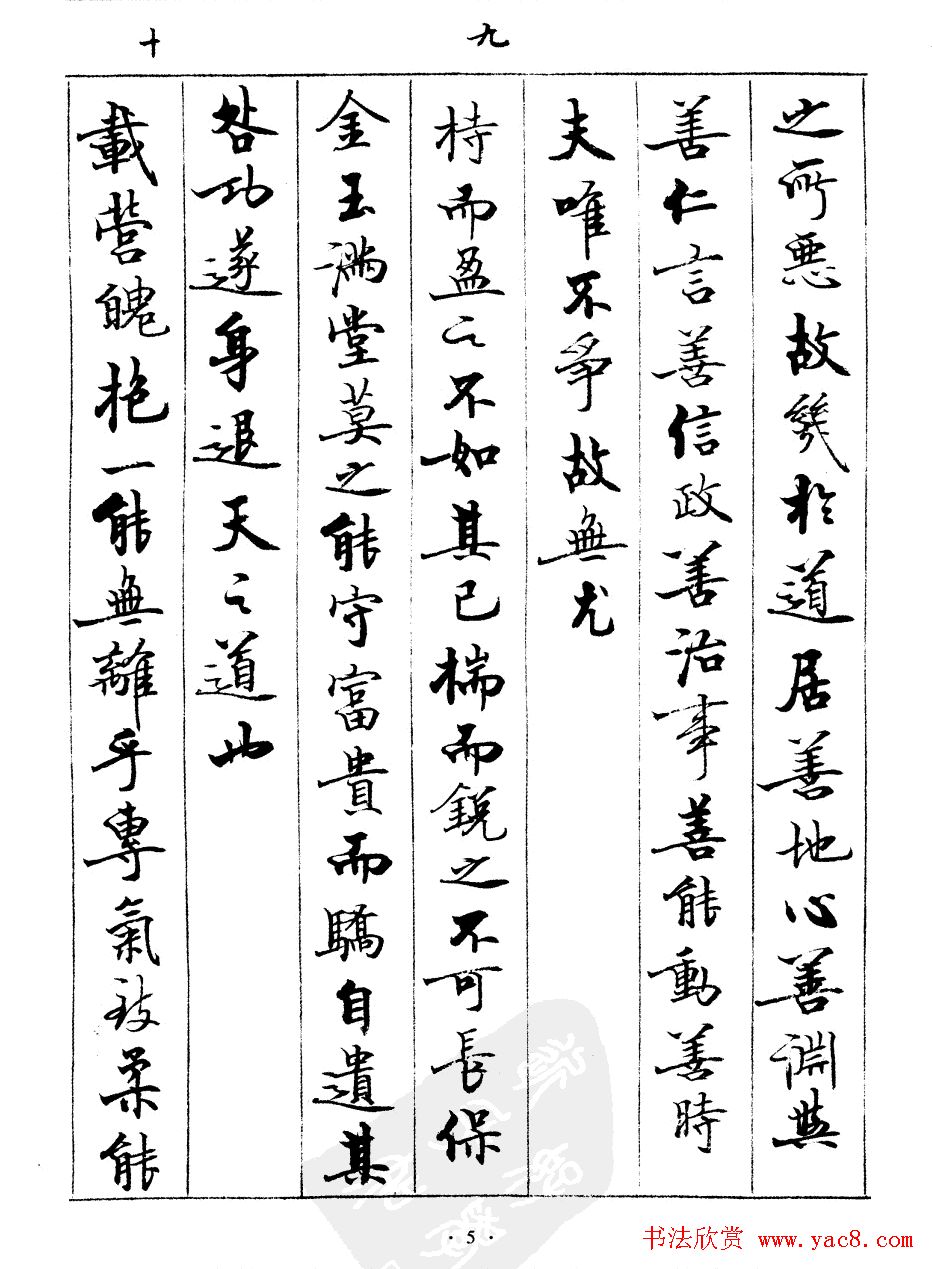 九
十
之所惡故幾於道居善地心善淵與
善仁言善信政善治事善能動善時
夫唯不爭故無尤
持而盈之不如其已揣而銳之不可長保
金玉滿堂莫之能守富貴而驕自遺其
咎功遂身退天之道也
載營魄抱一能無離乎專氣致柔能
·5·
书法欣赏 www.yac8.com